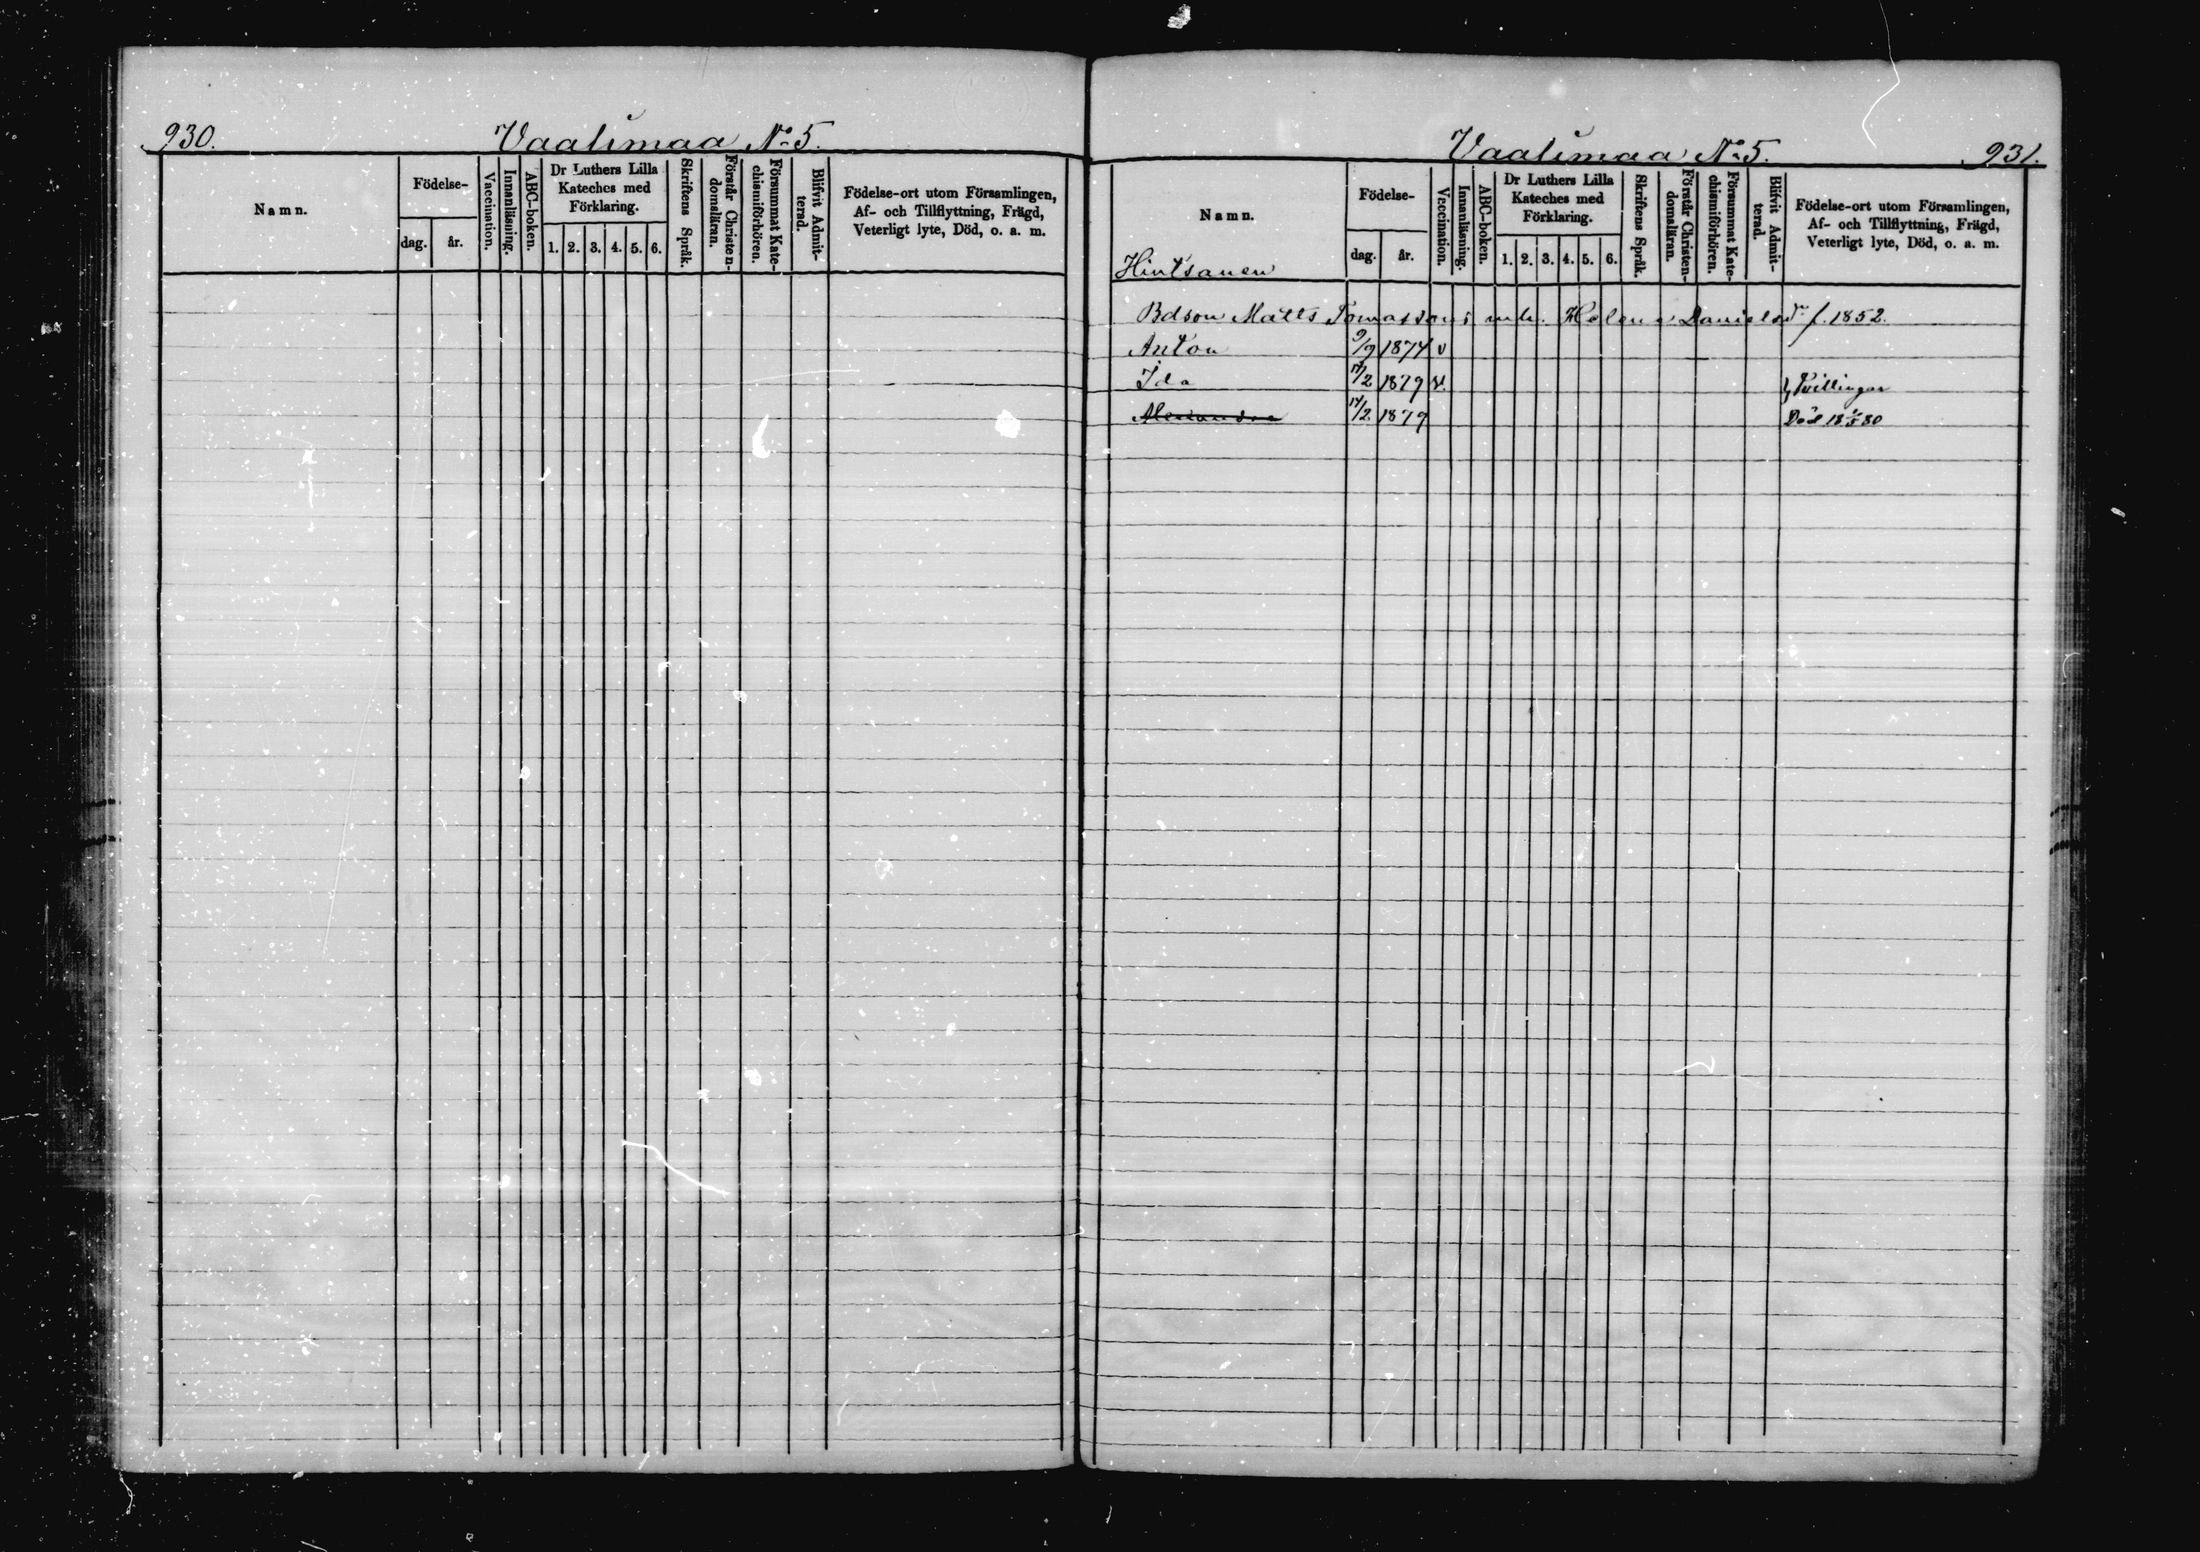 930.
Vaalimaa No 5.
Namn.
Födelse-
dag.
år.
Vaccination.
Innanläsning.
ABC-boken.
Dr Luthers Lilla
Kateches med
Förklaring.
1. 2. 3. 4. 5. 6.
Skriftens Språk.
Förstår Christen-
domsläran.
Försummat Kate-
chismiförhören.
Blifvit Admit-
terad.
Födelse-ort utom Församlingen,
Af- och Tillflyttning, Frägd,
Veterligt lyte, Död, o. a. m.
Vaalimaa No 5.
931.
Namn.
Födelse-
dag.
år.
Vaccination.
Innanläsning.
ABC-boken.
Dr Luthers Lilla
Kateches med
Förklaring.
1. 2. 3. 4. 5. 6.
Skriftens Språk.
Förstår Christen-
domsläran.
Försummat Kate-
chismiförhören.
Blifvit Admit-
terad.
Födelse-ort utom Församlingen,
Af- och Tillflyttning, Frägd,
Veterligt lyte, Död, o. a. m.
Hintsanen
Bdson Matts Tomassons Helena Danielsdr f. 1852.
Anton 9/9 1874 v
Ida 17/2 1879 v. } Tvillingar
Alexandra 17/2 1879 Död 18 80